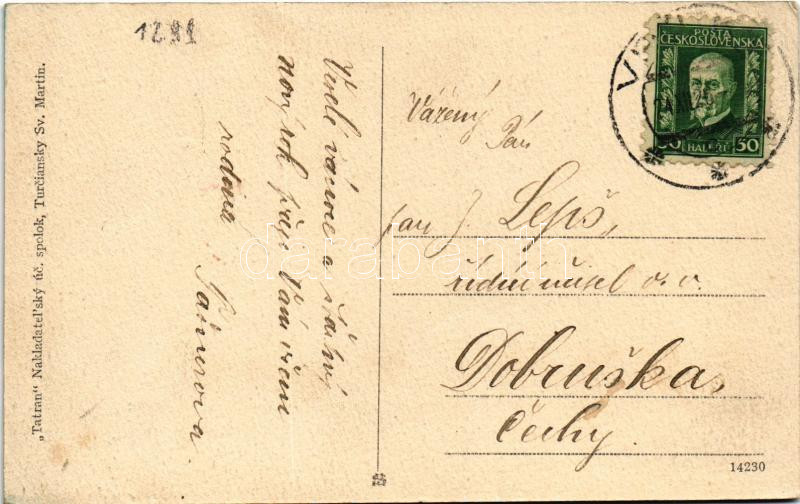 1299
„Tatran" Nakladateľský úč. spolok, Turčiansky Sv. Martin.
Veselé vánoce a šťastný
nový rok přeje Vám všem
rodina
POŠTA
ČESKOSLOVENSKÁ
30 HALÉŘŮ 30
Vážený
Pán
pan J. Lepš,
řídící učitel v. v.
Dobruška,
Čechy.
14230
darabanth